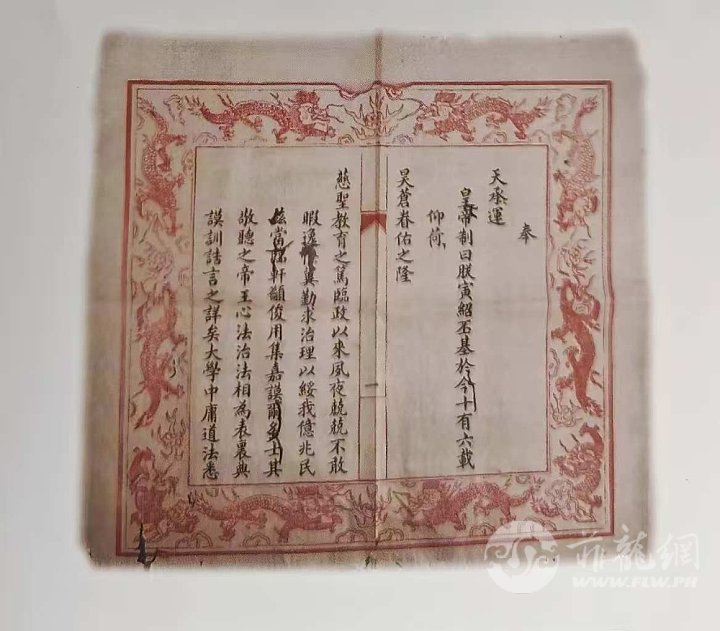 奉
天承運
皇帝制曰朕寅紹丕基於今十有六載
仰荷
昊蒼眷佑之隆
一
慈聖教育之篤臨政以來夙夜兢兢不敢
暇逸冀勤求治理以綏我億兆民
茲當臨軒顲俊用集嘉謨爾多士其
敬聽之帝王心法治法相為表裏典
謨訓誥言之詳矣大學中庸道法悉
菲龍網
WWW.FLW.PH